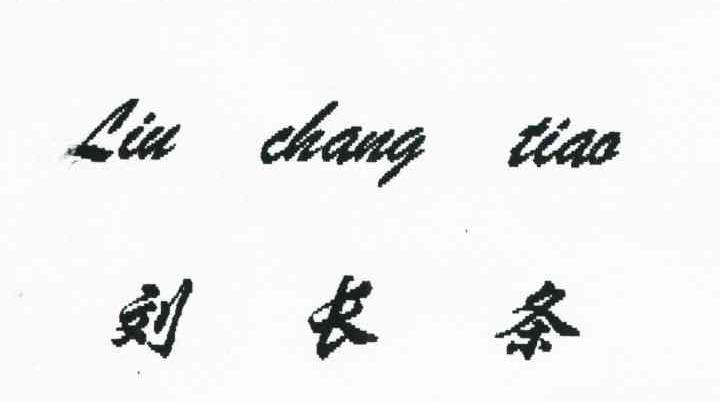 Liu chang tiao
刘 长 条